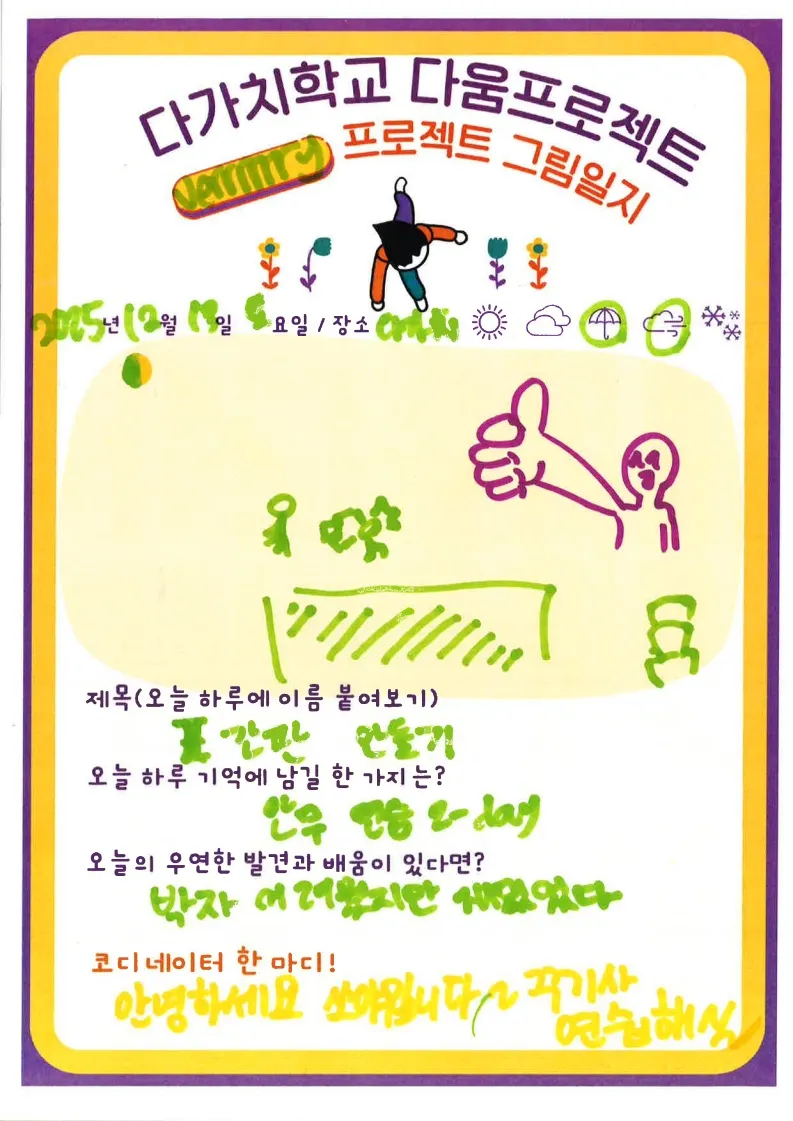 다가치학교 다움프로젝트
프로젝트 그림일지
2025년 12월 일 요일 / 장소
제목(오늘 하루에 이름 붙여보기)
간판 만들기
오늘 하루 기억에 남길 한 가지는?
안무 연습 2-day
오늘의 우연한 발견과 배움이 있다면?
박자 어려웠지만 재밌었다
코디네이터 한 마디!
안녕하세요 쏘야입니다~